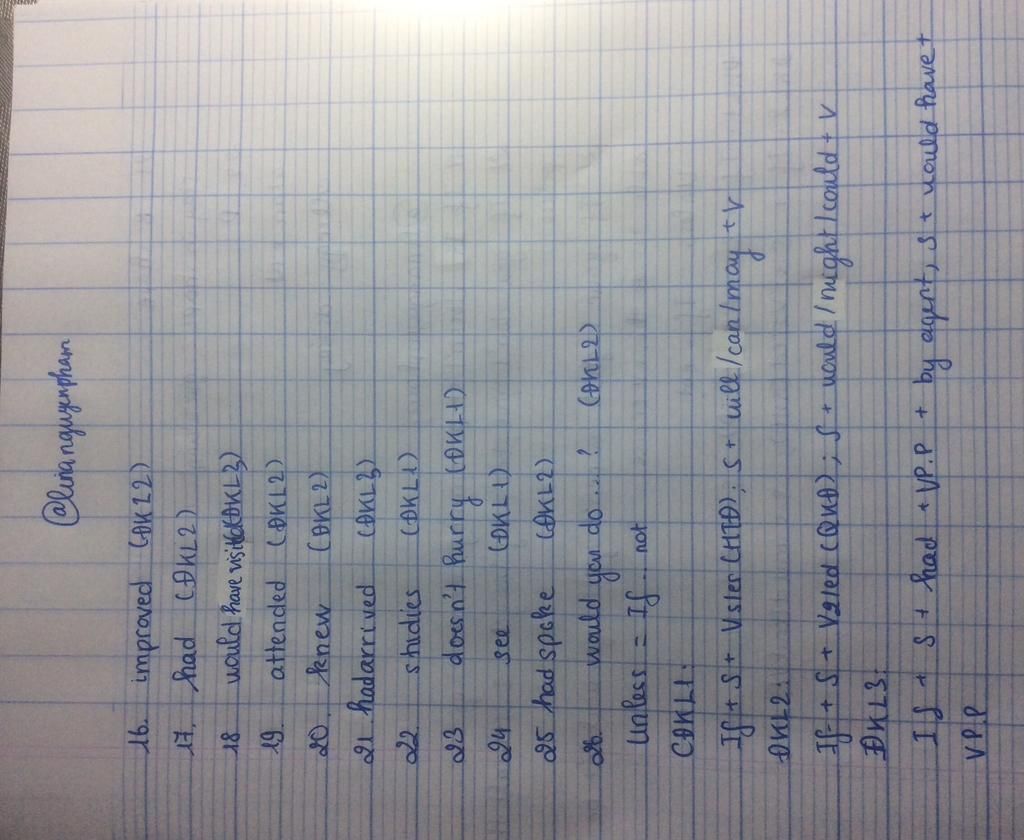 @linanguyenpham
16. improved (ĐKL2)
17. had (ĐKL2)
18 would have visited (ĐKL3)
19. attended (ĐKL2)
20. knew (ĐKL2)
21 had arrived (ĐKL3)
22. studies (ĐKL1)
23 doesn't hurry (ĐKL1)
24 see (ĐKL1)
25 had spoke (ĐKL2)
26. would you do....? (ĐKL2)
Unless = If.... not
CĐKL1:
If + S + Vs/es (HTĐ); S + will/can/may + V
ĐKL2:
If + S + V2/ed (QKĐ); S + would/might/could + V
ĐKL3:
If + S + had + VP.P + by agent, S + would have +
VP.P